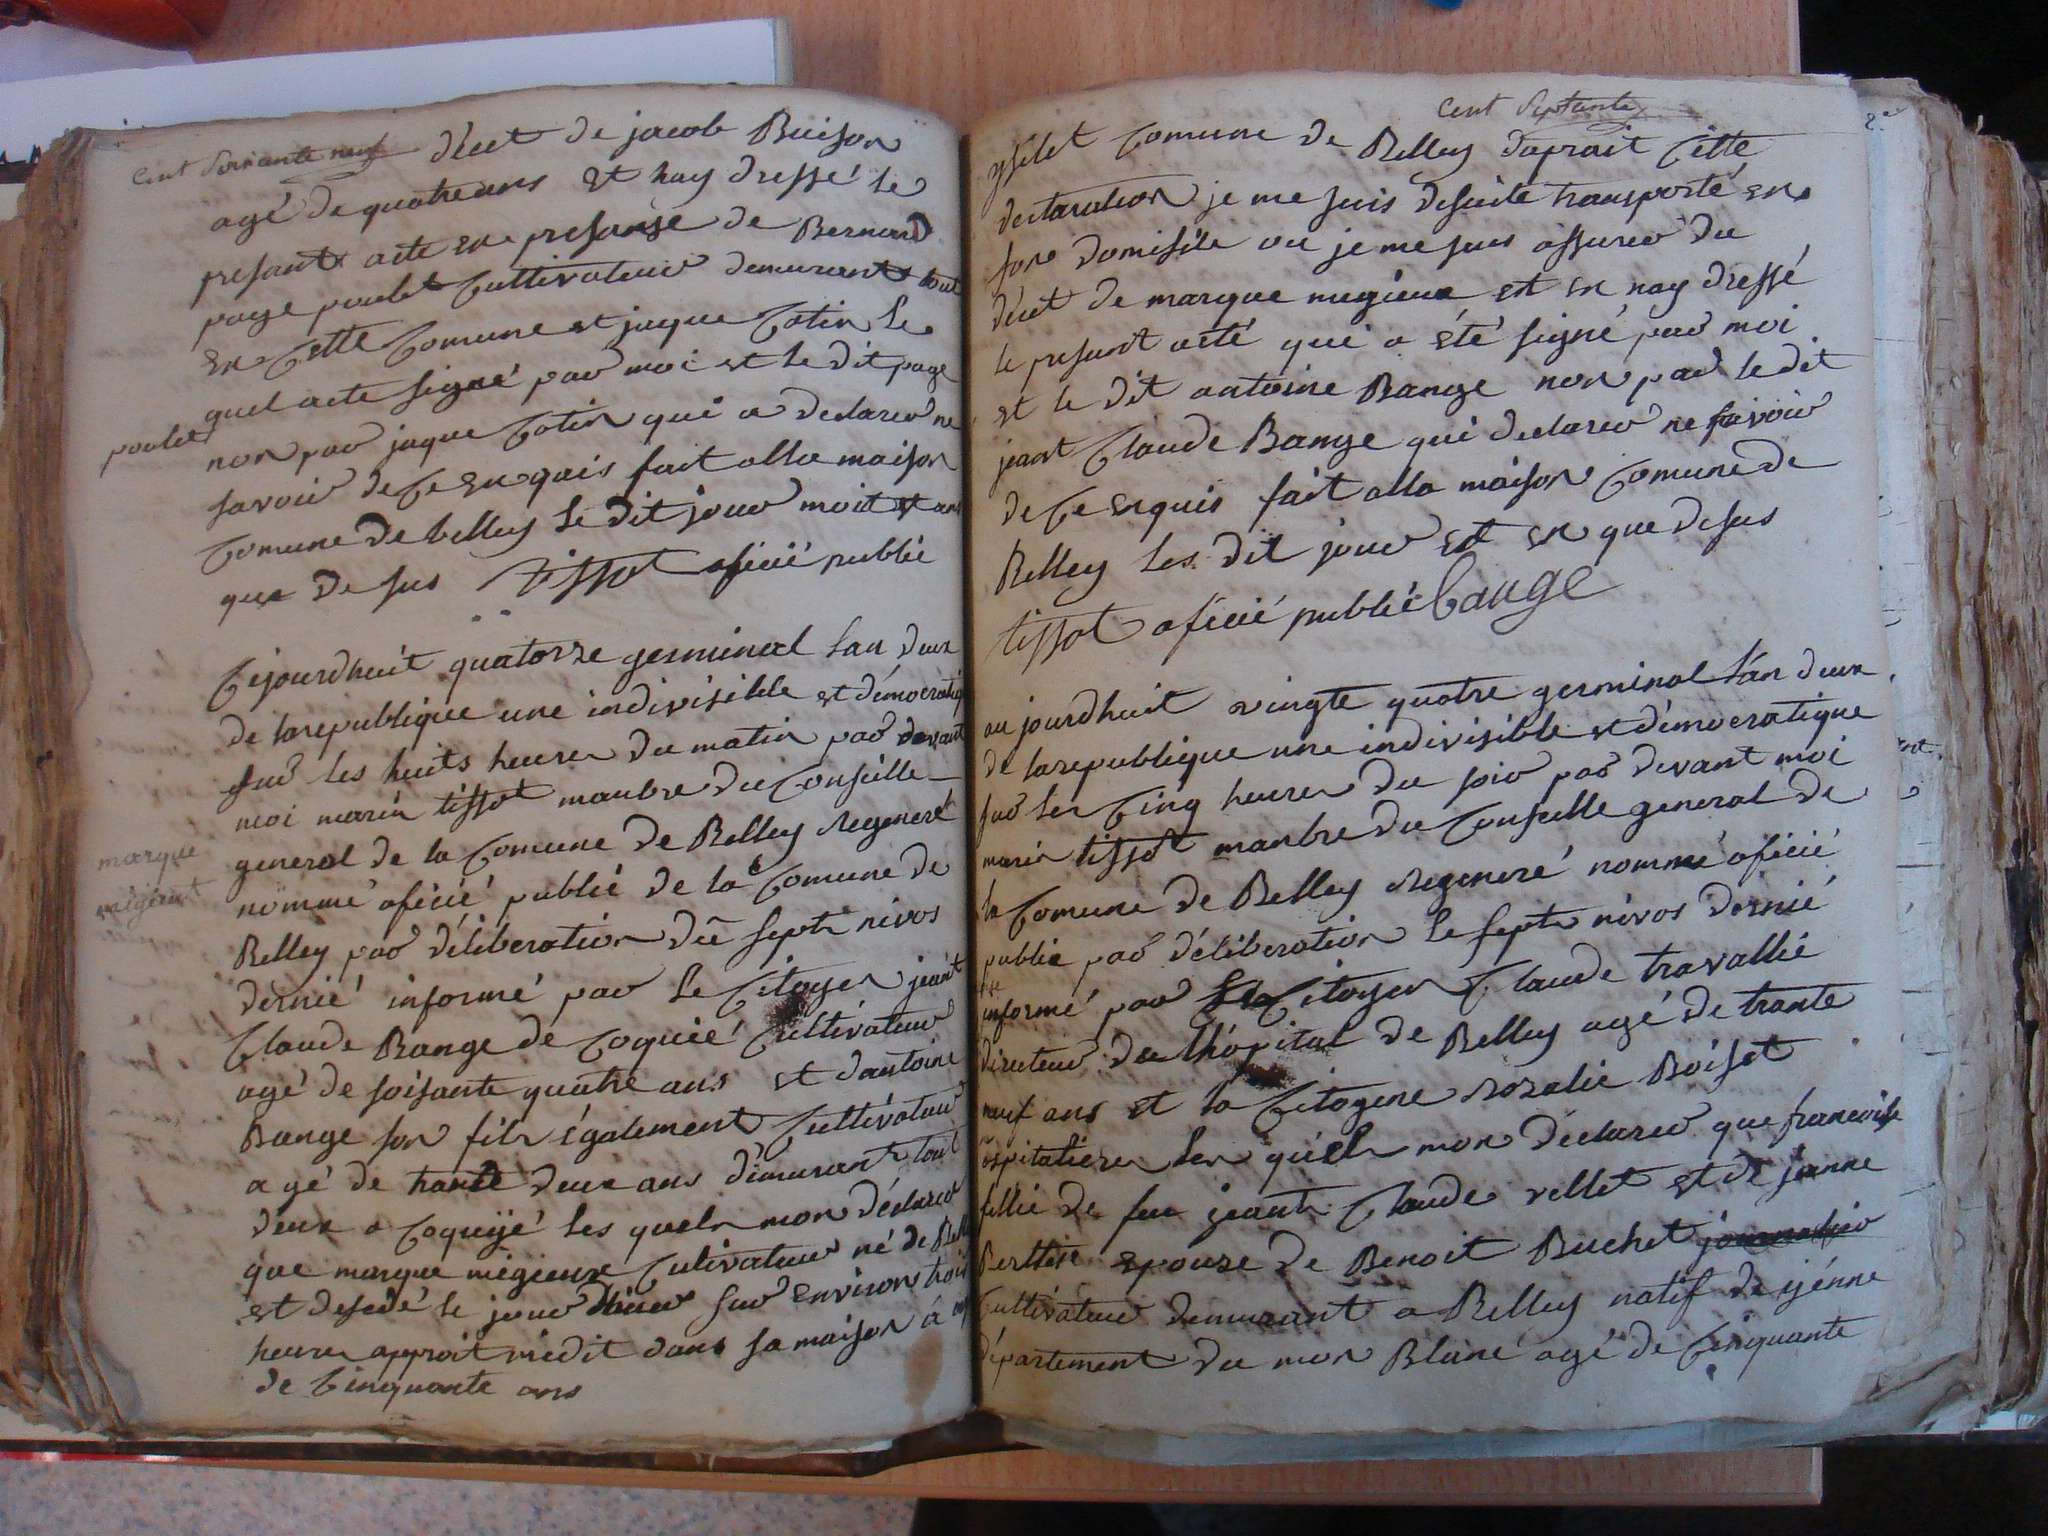 Cent Soixante neuf décet de jacob Buison
agé de quatre ans et nay dressé le
presant acte en presanse de Bernard
page poulet Cultivateur demurant tout
en Cette Comune et jaque Cotin Le
quel acte signé par moi et le dit page
poulet
non par jaque Cotin qui a declarer ne
savoir de Ce enquis fait alla maison
Comune de belley Le dit jour moit et ans
que de sus tissot oficié publié
Cejourdhuit quatorze germinal lan deux
de la republique une indivisible et démocratiq
sur les huits heures du matin par devant
moi marin tissot manbre du Conseille
general de la Comune de Belley regeneré
marque
nommé oficié publié de la Comune de
Belley par déliberation du sept nivos
dernié informé par Le Citoyen jeant
Claude Bange de Coquié Cultivateur
agé de soisante quatre ans et dantoine
Bange son fils également Cultivateur
agé de trante deux ans démurant tout
deux a Coquijé les quels mon déclarer
que marque mégieux Cultivateur né de Belle
et desedé le jour dhier sur environs trois
heures approit midit dans sa maison a
de Cinquante ans
Cent Septante
Comune de Belley daproit Cette
declaration je me suis desuite transporté en
son domisile ou je me suis assurer du
décet de marque megieux et en nay dressé
le presant acté qui a été signé par moi
et le dit antoine Bange non par le dit
jeant Claude Bange qui declarer ne savoir
de Ce enquis fait alla maison Comune de
Belley les dit jour et en que desus
tissot oficié publié Bauge
aujourdhuit vingte quatre germinal lan deux
de la republique une indivisible et démocratique
sur les Cinq heures du soir par devant moi
marin tissot manbre du Conseille general de
la Comune de Belley regeneré nommé oficié
publie par déliberation le sept nivos dernié
informé par Le Citoyen Claude travallié
directeur du lhôpital de Belley agé de trante
neuf ans et la Citoyene rozalie Boisset
ospitalieres les quels mon déclarer que francoise
fillie de feu jeant Claude vellet et de janne
Berthet epouze de Benoit Buchet journalier
Cultivateur demurant a Belley natif de yénne
département du mon Blanc agé de Cinquante